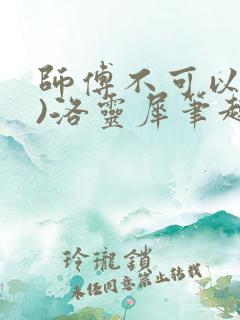 師傅不可以
)洛靈犀筆趣
玲瓏鎖
未經同意禁止轉載